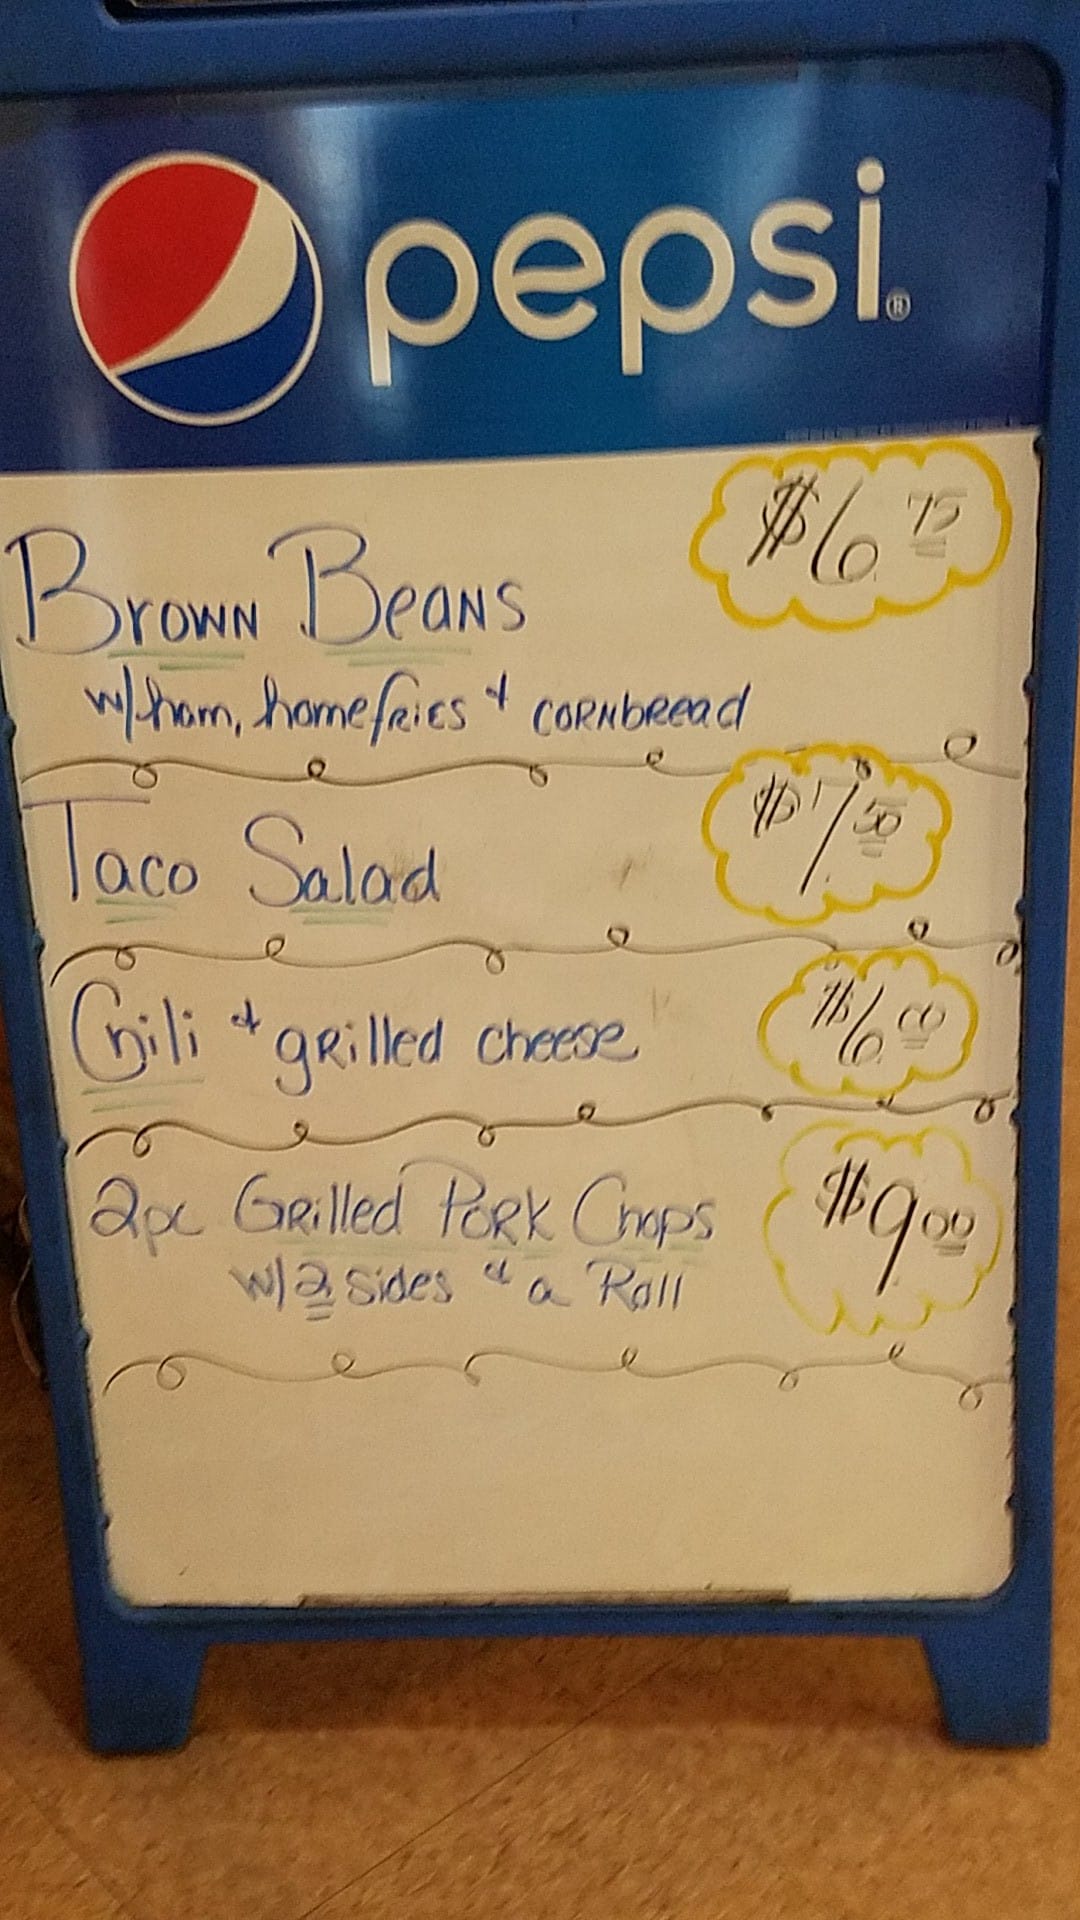 pepsi®
$6 75
Brown Beans
w/ham, homefries & cornbread
$7 50
Taco Salad
Chili & grilled cheese $6 00
2pc Grilled Pork Chops $9 00
w/2 sides & a Roll